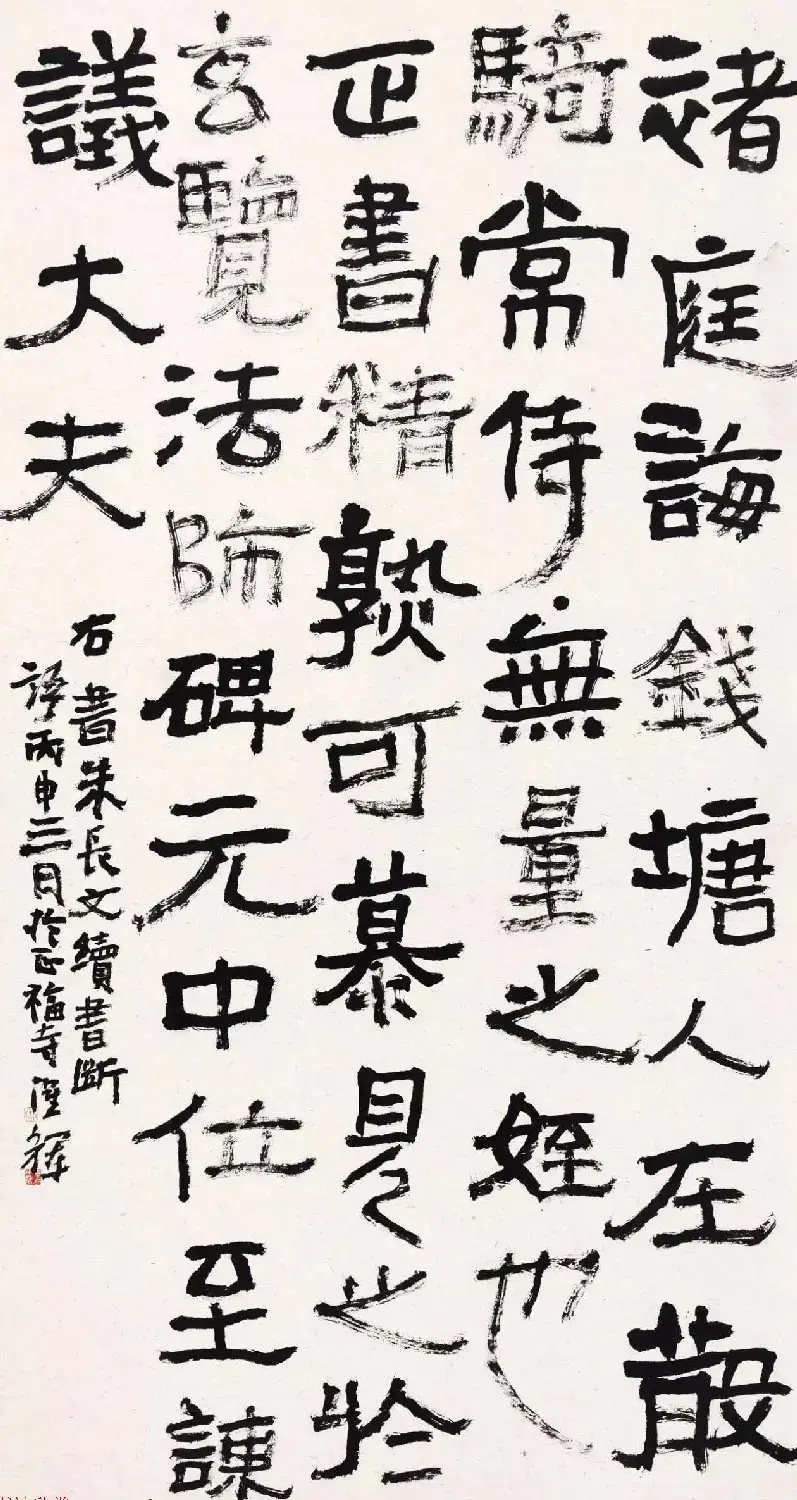 褚庭誨錢塘人左散
騎常侍無量之姪也
正書精熟可慕見之於
玄覽法師碑元中位至諫
議大夫
右書朱長文續書斷
語丙申三月於正福寺